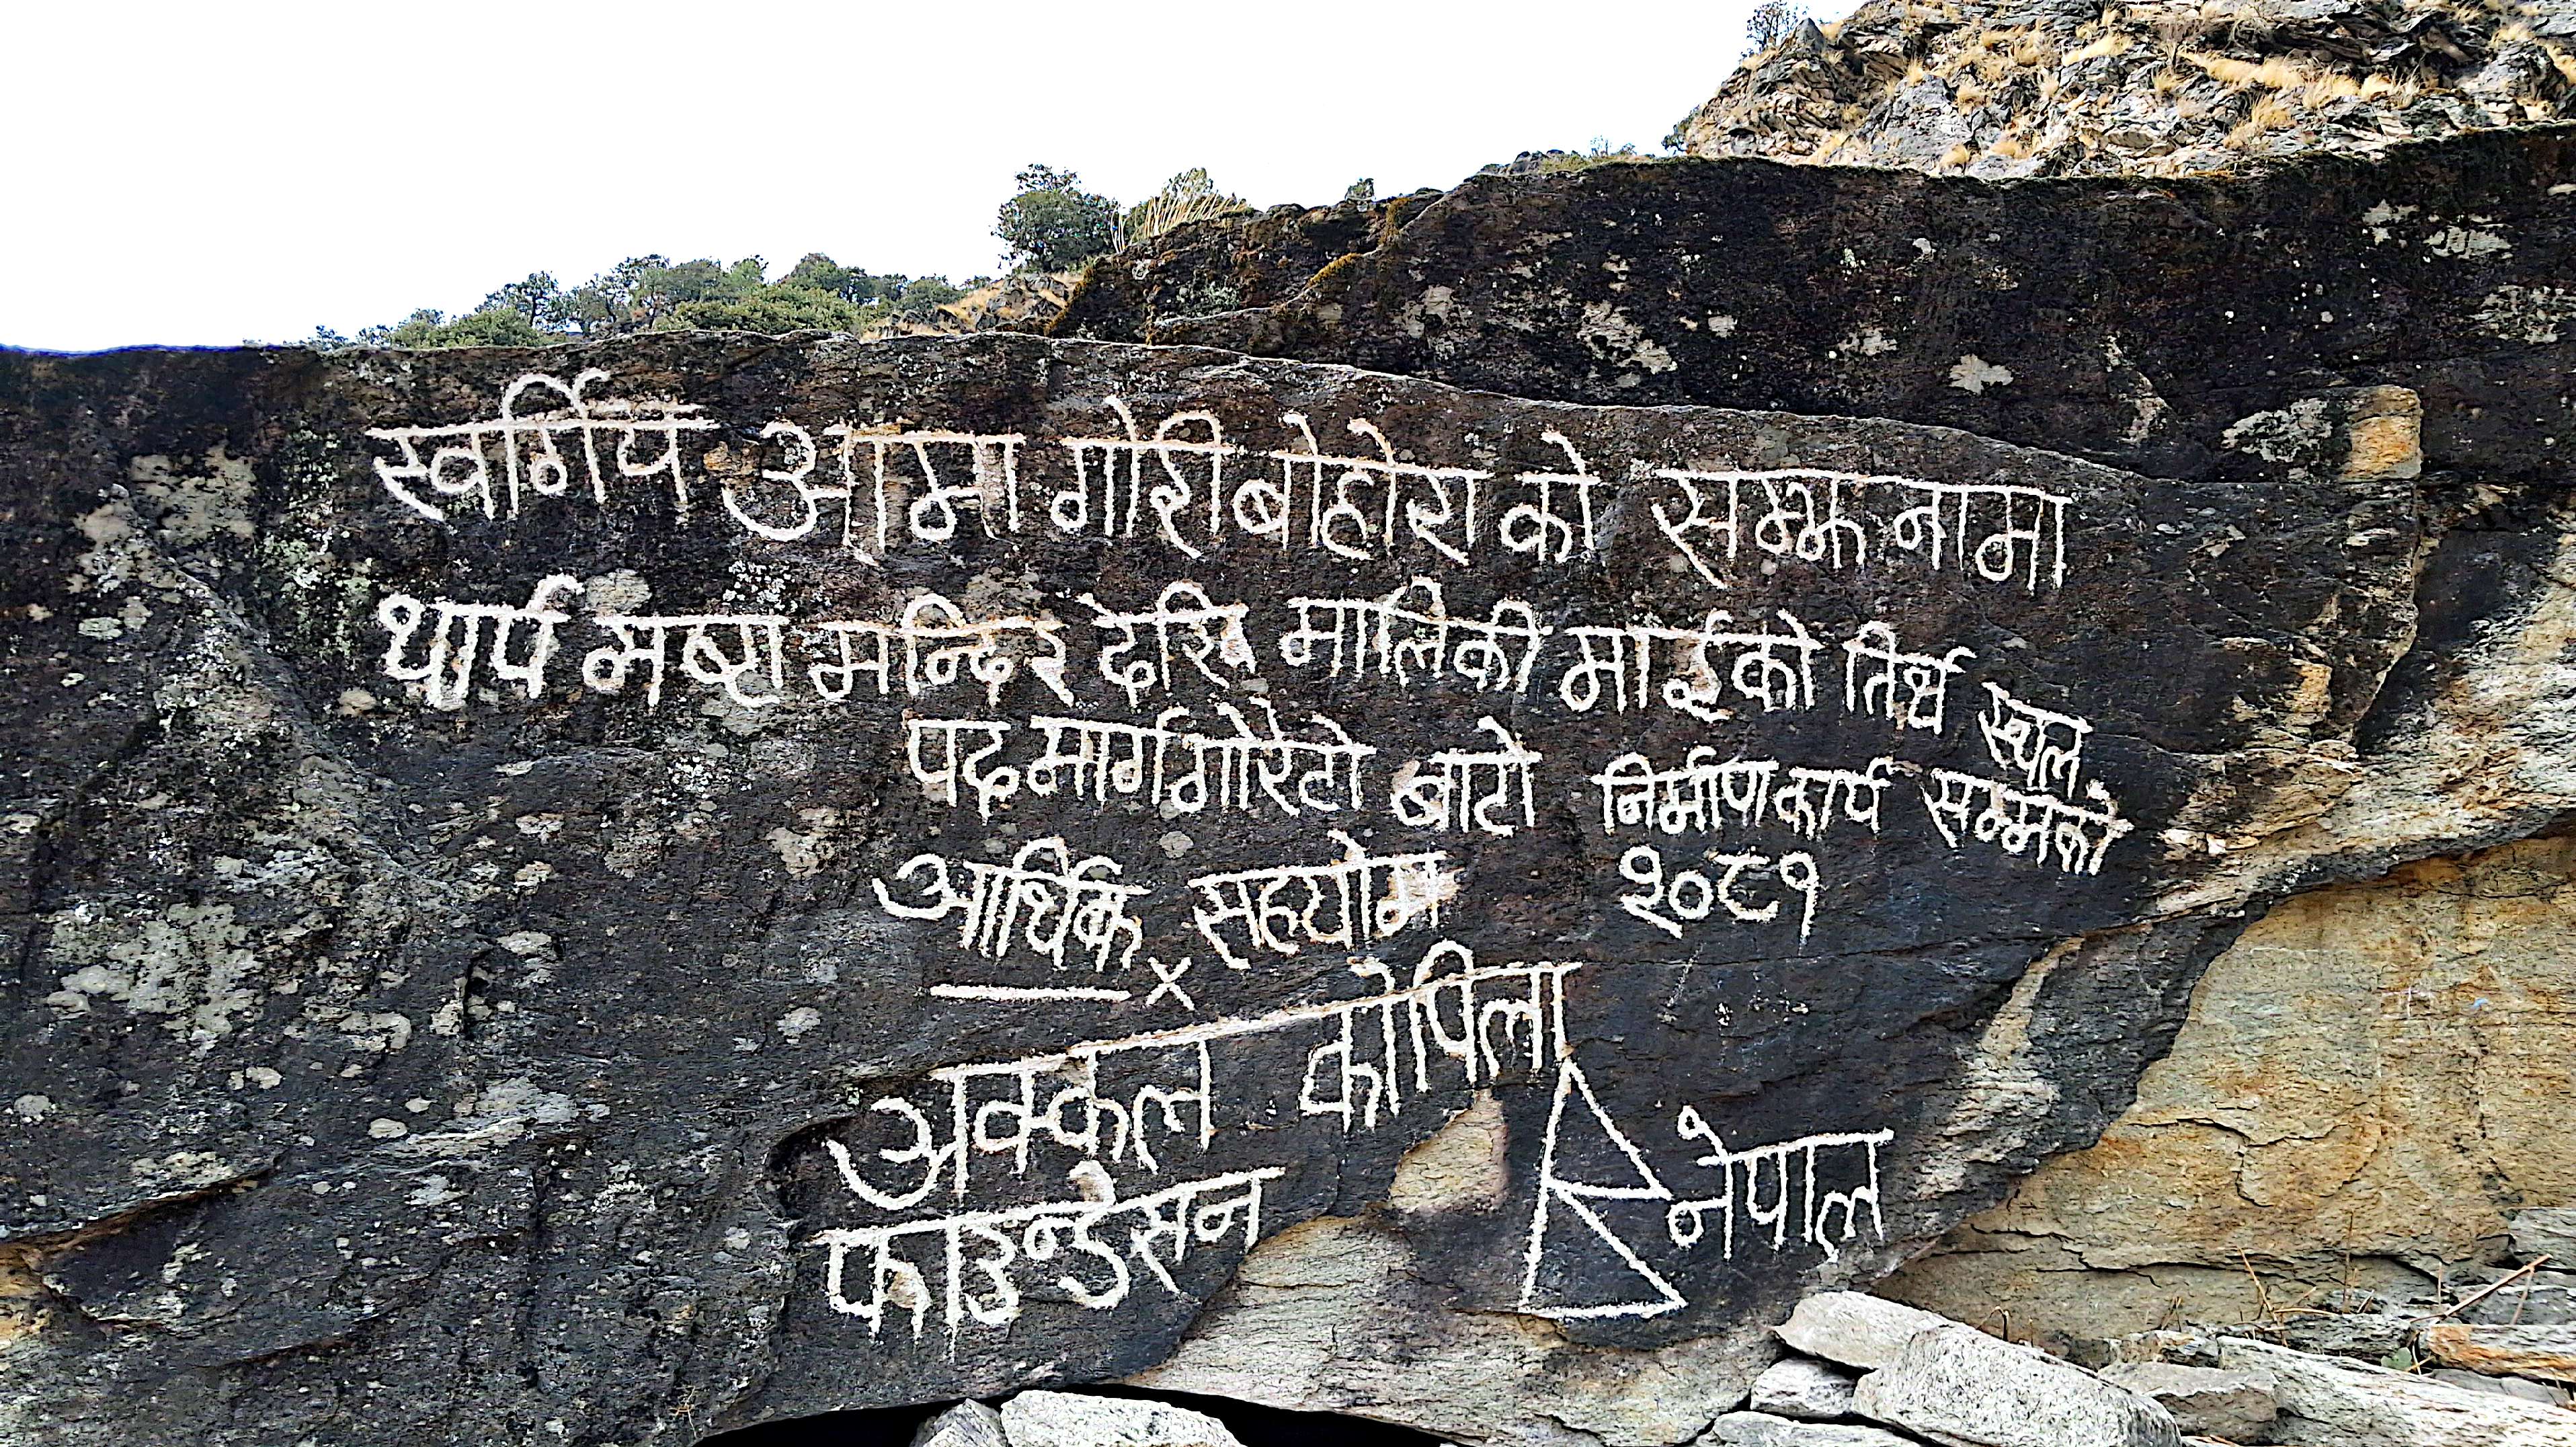 स्वर्गिय आमा गोरी बोहोरा को सम्झनामा
थार्प मष्टा मन्दिर देखि मालिकी माईको तिर्थ स्थल
पदमार्ग गोरेटो बाटो निर्माण कार्य सम्मको
आर्थिक सहयोग २०८१
अक्कल कोपिला
फाउन्डेसन नेपाल